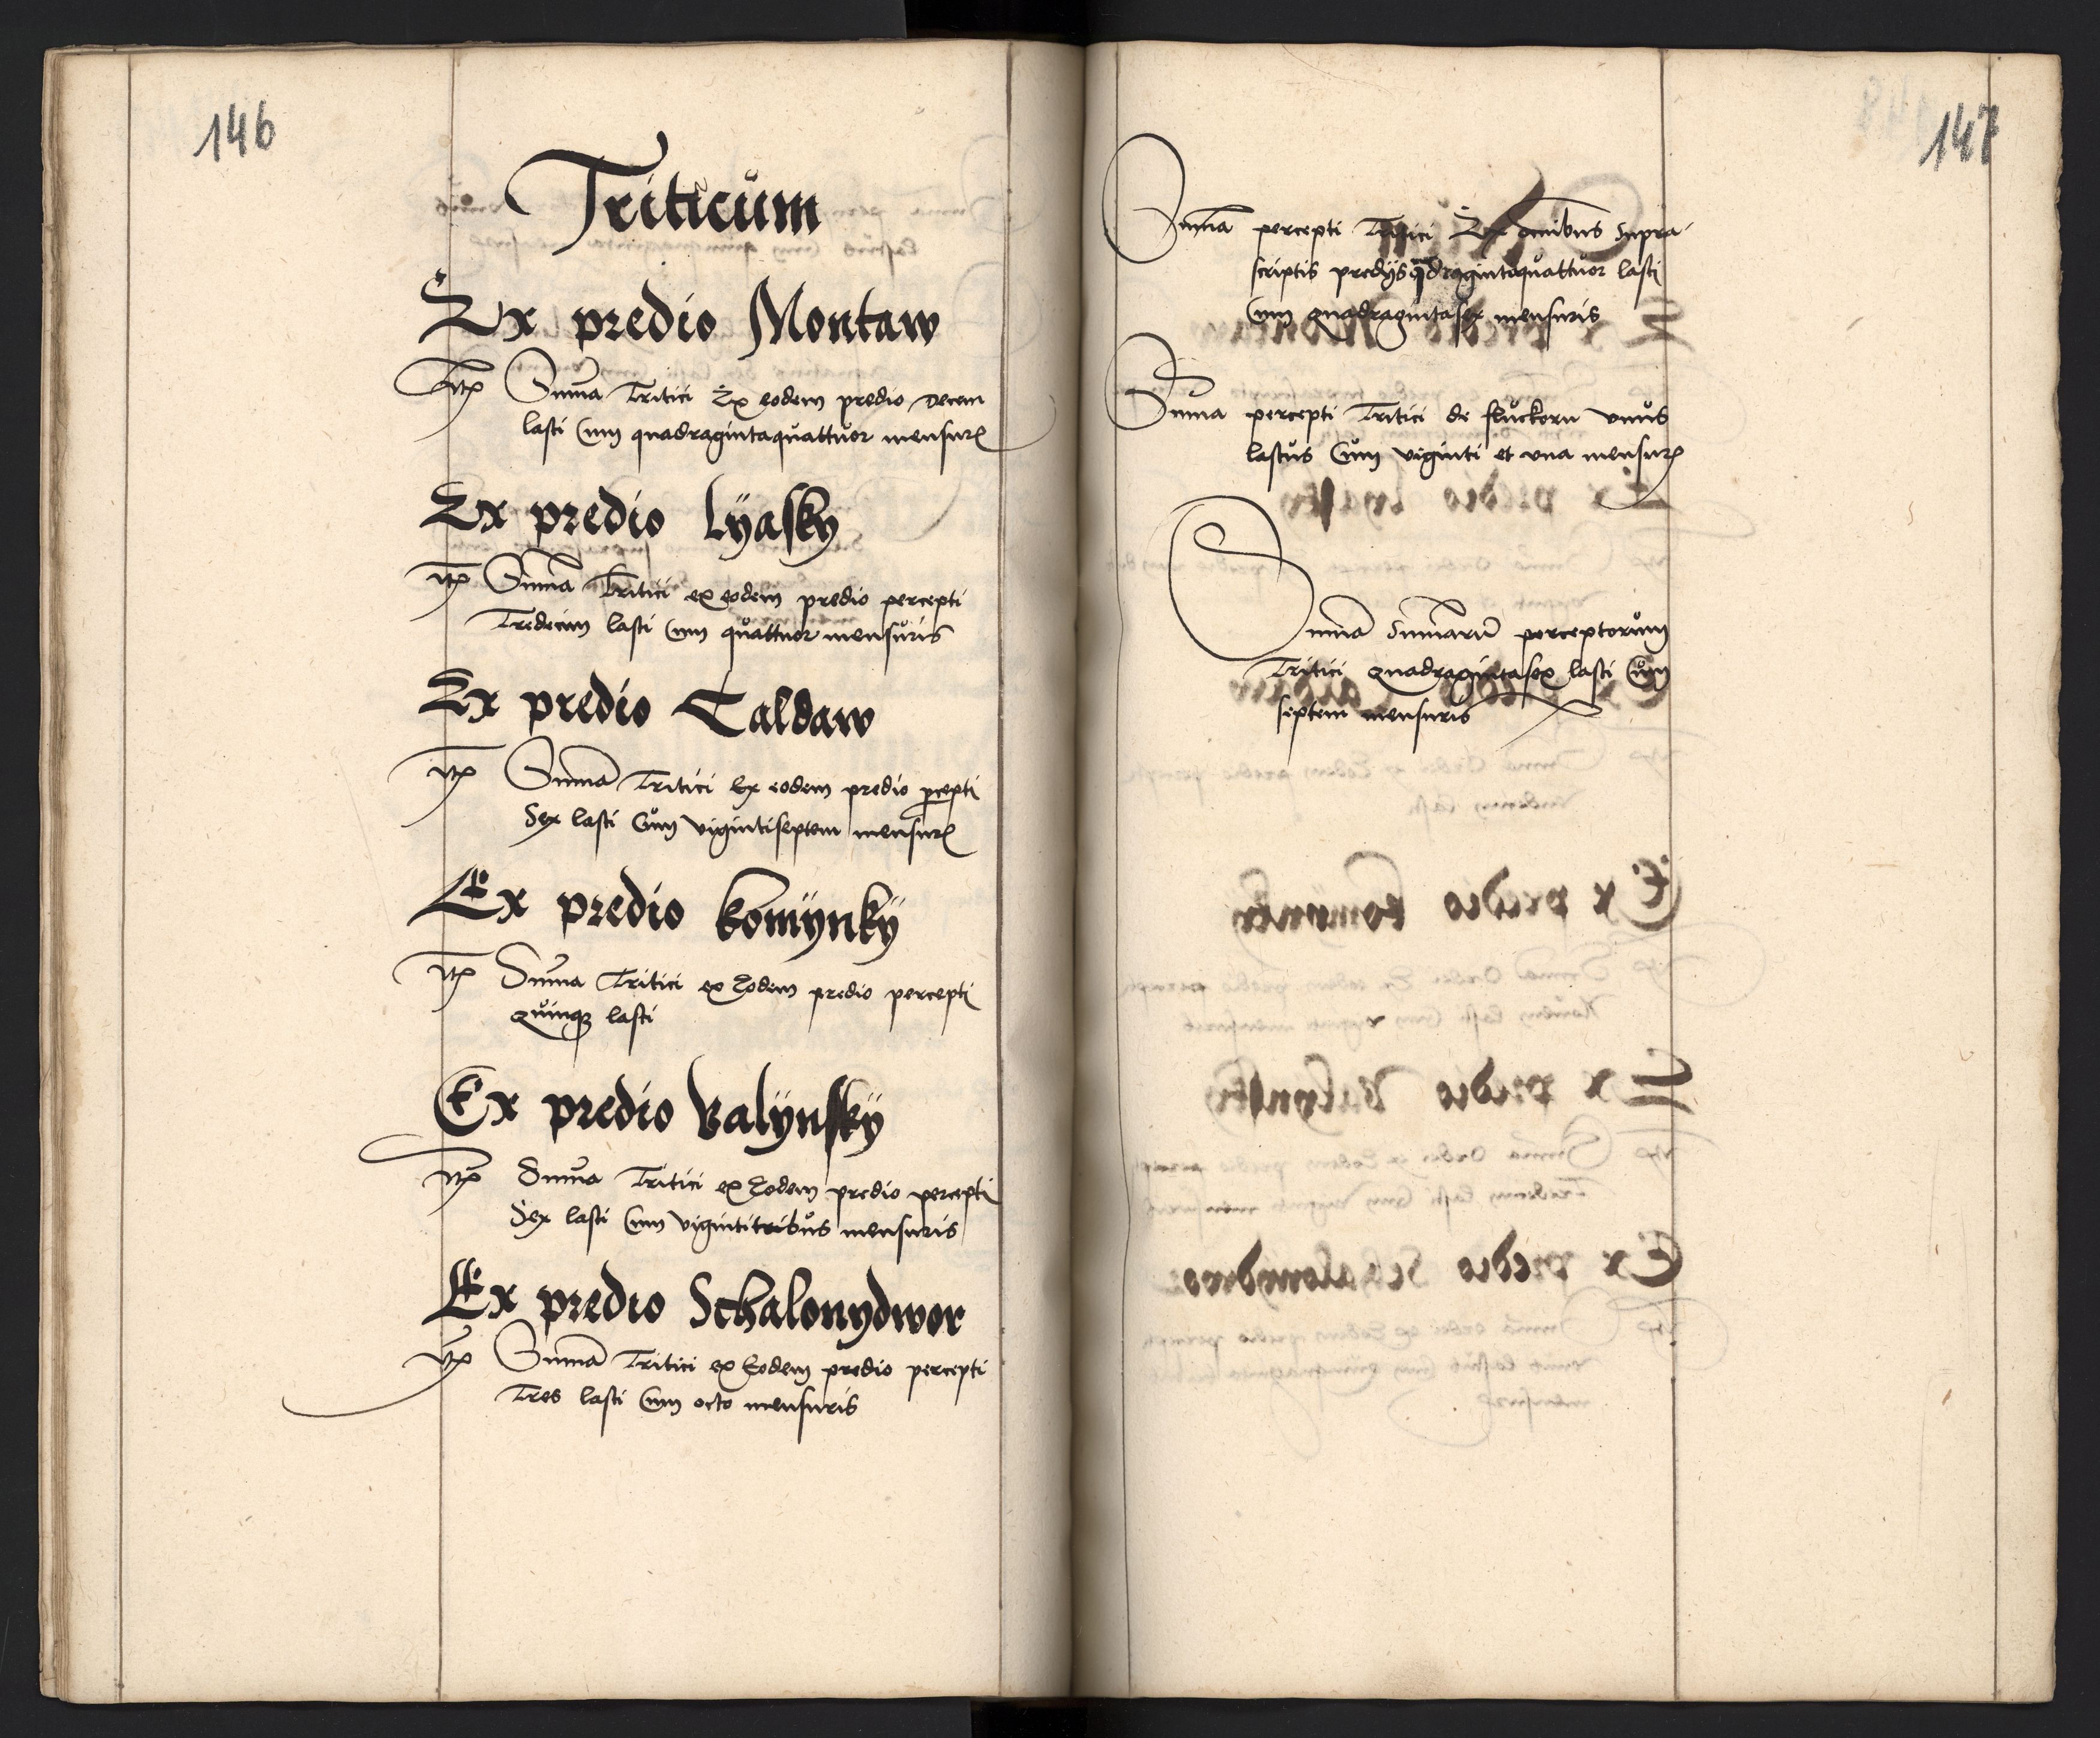 146
Triticum
Ex predio Montaw
Itē Suma Tritici Ex eodem predio Decem
lasti Cum quadragintaquattuor mensurꝭ
Ex predio Lÿasky
Itē Suma Tritici ex eodem predio percepti
Tredecim lasti Cum quattuor mensuris
Ex predio Caldaw
Itē Suma Tritici Ex eodem predio ꝑcepti
Sex lasti Cum vigintiseptem mensurꝭ
Ex predio komÿnkÿ
Itē Suma Tritici ex Eodem predio percepti
Quinqꝫ lasti
Ex predio Valÿnskÿ
Itē Suma Tritici ex Eodem predio percepti
Sex lasti Cum vigintitribus mensuris
Ex predio Schalonydwor
Itē Suma Tritici ex Eodem predio percepti
Tres lasti Cum octo mensuris
147
Suma percepti Tritici Ex omibus supra
scriptis predÿs qdragintaquattuor lasti
Cum quadragintasex mensuris
Suma percepti Tritici de fluckorn vnus
lastus Cum viginti et vna mensurꝭ
Suma Sumaru perceptorum
Tritici quadragintasex lasti Cum
septem mensuris